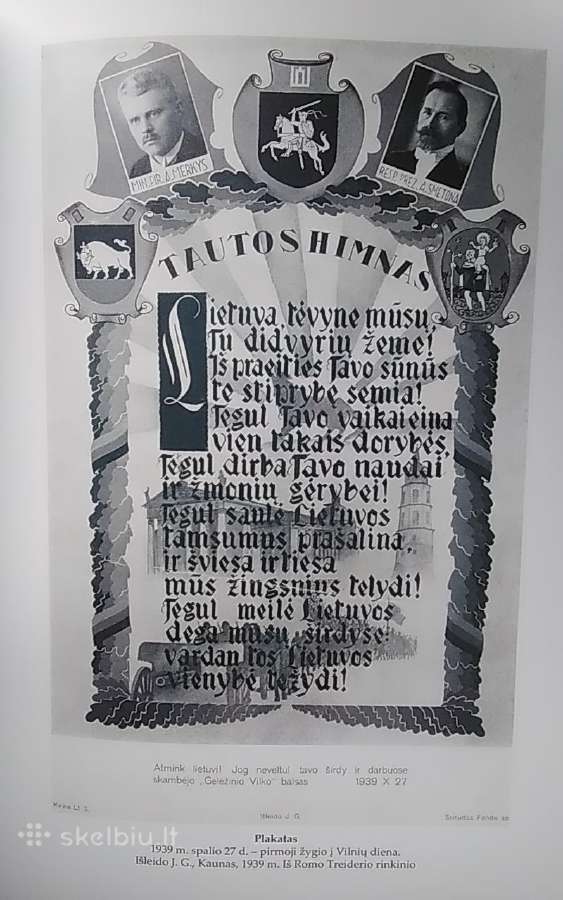 MIN. PIR. A. MERKYS
RESP. PREZ. A. SMETONA
TAUTOS HIMNAS
Lietuva, tėvyne mūsų,
Tu didvyrių žeme!
Iš praeities Tavo sūnūs
te stiprybę semia!
Tegul Tavo vaikai eina
vien takais dorybės,
Tegul dirba Tavo naudai
ir žmonių gėrybei!
Tegul saulė Lietuvos
tamsumus prašalina,
ir šviesa ir tiesa
mūs žingsnius telydi!
Tegul meilė Lietuvos
dega mūsų širdyse
vardan tos Lietuvos
vienybė težydi!
Atmink lietuvi! Jog neveltui tavo širdy ir darbuose
skambėjo „Geležinio Vilko" balsas 1939 X 27
Kaina Lt
Išleido J. G.
skelbiu.lt
Plakatas
1939 m. spalio 27 d. – pirmoji žygio į Vilnių diena.
Išleido J. G., Kaunas, 1939 m. Iš Romo Treiderio rinkinio